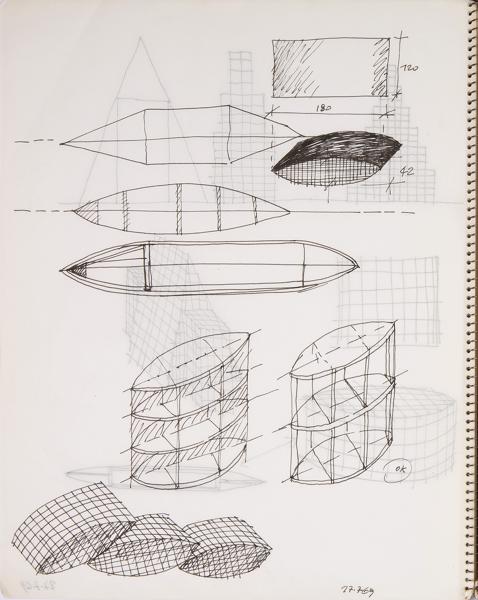 120
180
42
OK
27.7.69